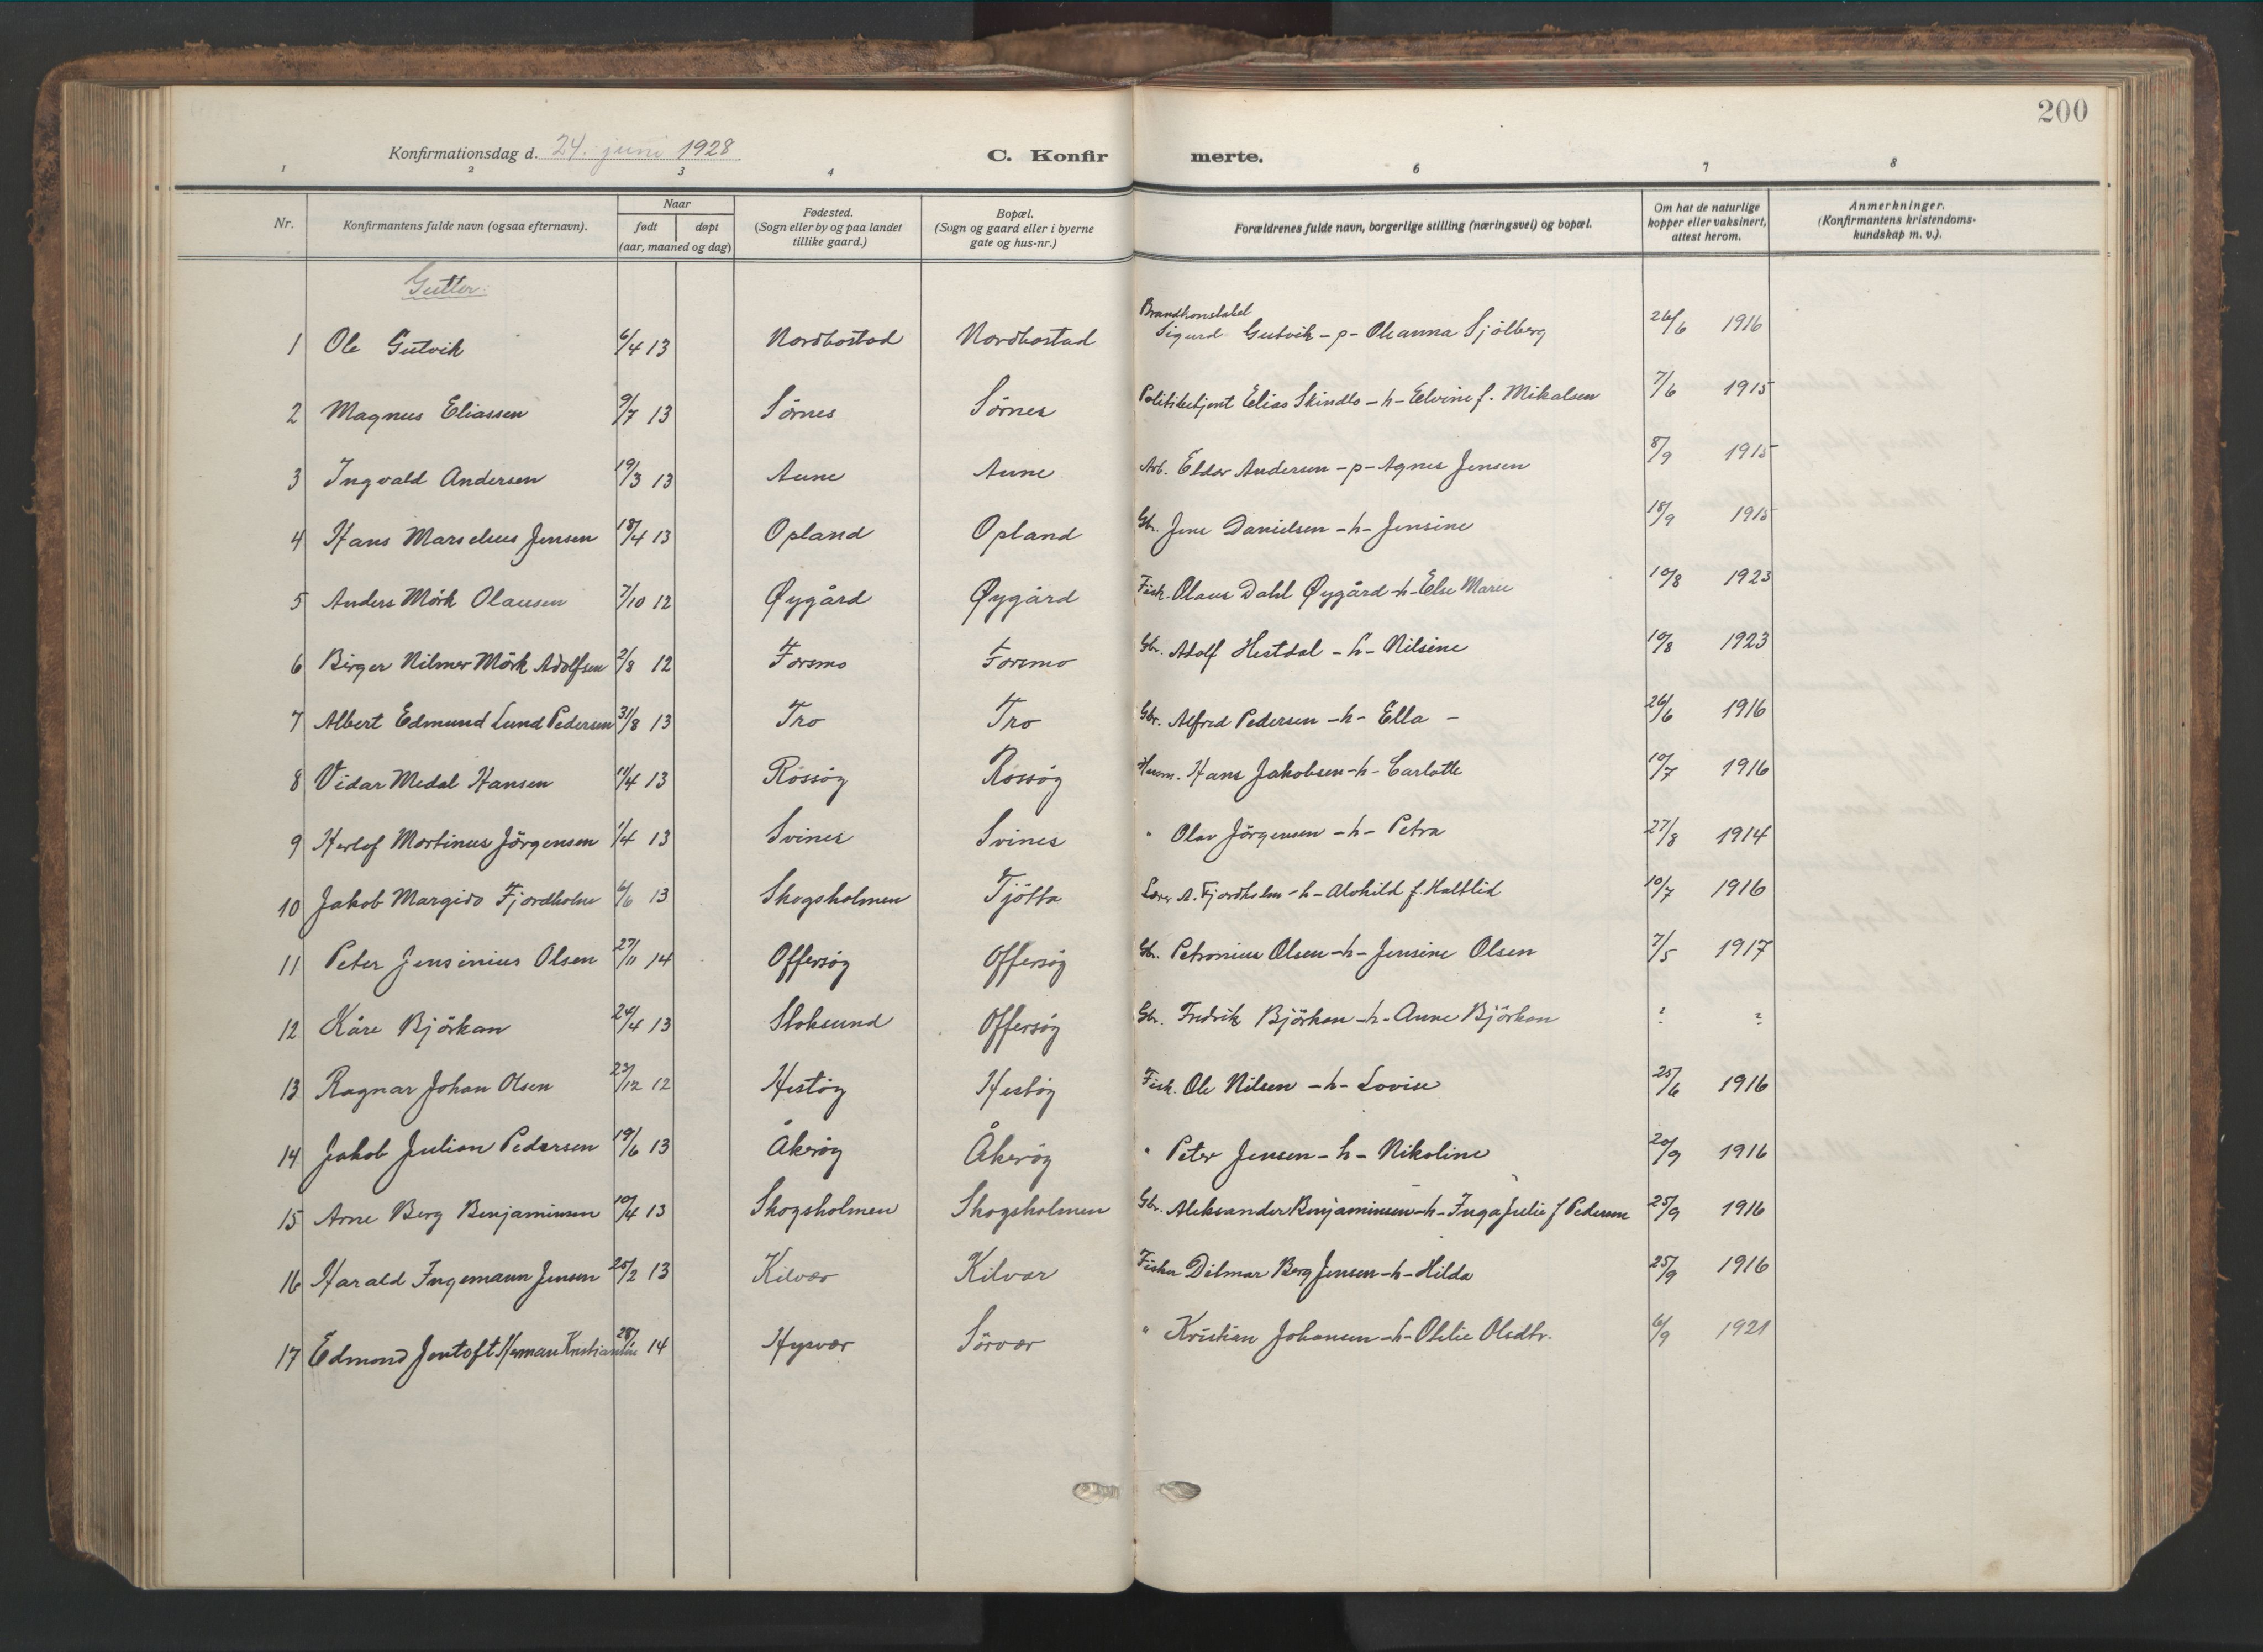 200
Konfirmationsdag d. 24. juni 1928
C. Konfirmerte.
1 2 3 4 6 7 8
Nr. | Konfirmantens fulde navn (ogsaa efternavn). | Naar født døpt (aar, maaned og dag) | Fødested. (Sogn eller by og paa landet tillike gaard.) | Bopæl. (Sogn og gaard eller i byerne gate og hus-nr.) | Forældrenes fulde navn, borgerlige stilling (næringsvei) og bopæl. | Om hat de naturlige kopper eller vaksinert, attest herom. | Anmerkninger. (Konfirmantens kristendoms-kundskap m. v.).
Gutter:
1 Ole Gutvik 6/4 13 Nordbostad Nordbostad Brandkonstabel Sigurd Gutvik - p - Oleanna Sjölberg 26/6 1916
2 Magnus Eliassen 9/7 13 Sörnes Sörnes Politibetjent Elias Skindlo - h - Elvine f. Mikalsen 7/6 1915
3 Ingvald Andersen 19/3 13 Aune Aune Arb. Eldor Andersen - p - Agnes Jensen 8/9 1915
4 Hans Marselius Jensen 18/4 13 Opland Opland Gbr. Jens Danielsen - h - Jensine 18/9 1915
5 Anders Mörk Olausen 7/10 12 Øygård Øygård Fisk. Olaus Dahl Øygård - h - Else Marie 10/8 1923
6 Birger Hilmer Mörk Adolfsen 2/8 12 Forsmo Forsmo Gbr. Adolf Hestdal - h - Nilsine 10/8 1923
7 Albert Edmund Lund Pedersen 31/8 13 Tro Tro Gbr. Alfred Pedersen - h - Ella - 26/6 1916
8 Vidar Medal Hansen 11/4 13 Rossöy Rossöy Husm. Hans Jakobsen - h - Carlotte 10/7 1916
9 Herlof Martinus Jörgensen 1/4 13 Svines Svines " Olav Jörgensen - h - Petra 27/8 1914
10 Jakob Margido Fjordholm 6/6 13 Skogsholmen Tjötta Lærer A. Fjordholm - h - Alvhild f. Haltlid 10/7 1916
11 Peter Jensinius Olsen 27/11 14 Offersöy Offersöy Gbr. Petronius Olsen - h - Jensine Olsen 7/5 1917
12 Kåre Björkan 24/4 13 Stoksund Offersöy Gbr. Fredrik Björkan - h - Anne Björkan ? ?
13 Ragnar Johan Olsen 23/12 12 Hestöy Hestöy Fisk. Ole Nilsen - h - Lovise 25/6 1916
14 Jakob Julian Pedersen 19/6 13 Åkeröy Åkeröy " Peter Jensen - h - Nikoline 20/9 1916
15 Arne Berg Benjaminsen 10/4 13 Skogsholmen Skogsholmen Gbr. Aleksander Benjaminsen - h - Inga Julie f Pedersen 25/9 1916
16 Harald Ingemann Jensen 25/2 13 Kilvær Kilvær Fisker Dilmar Berg Jensen - h - Hilda 25/9 1916
17 Edmond Jentoft Herman Kristiansen 28/1 14 Hysvær Sörvær " Kristian Johansen - h - Otelie Olsdtr. 6/9 1921